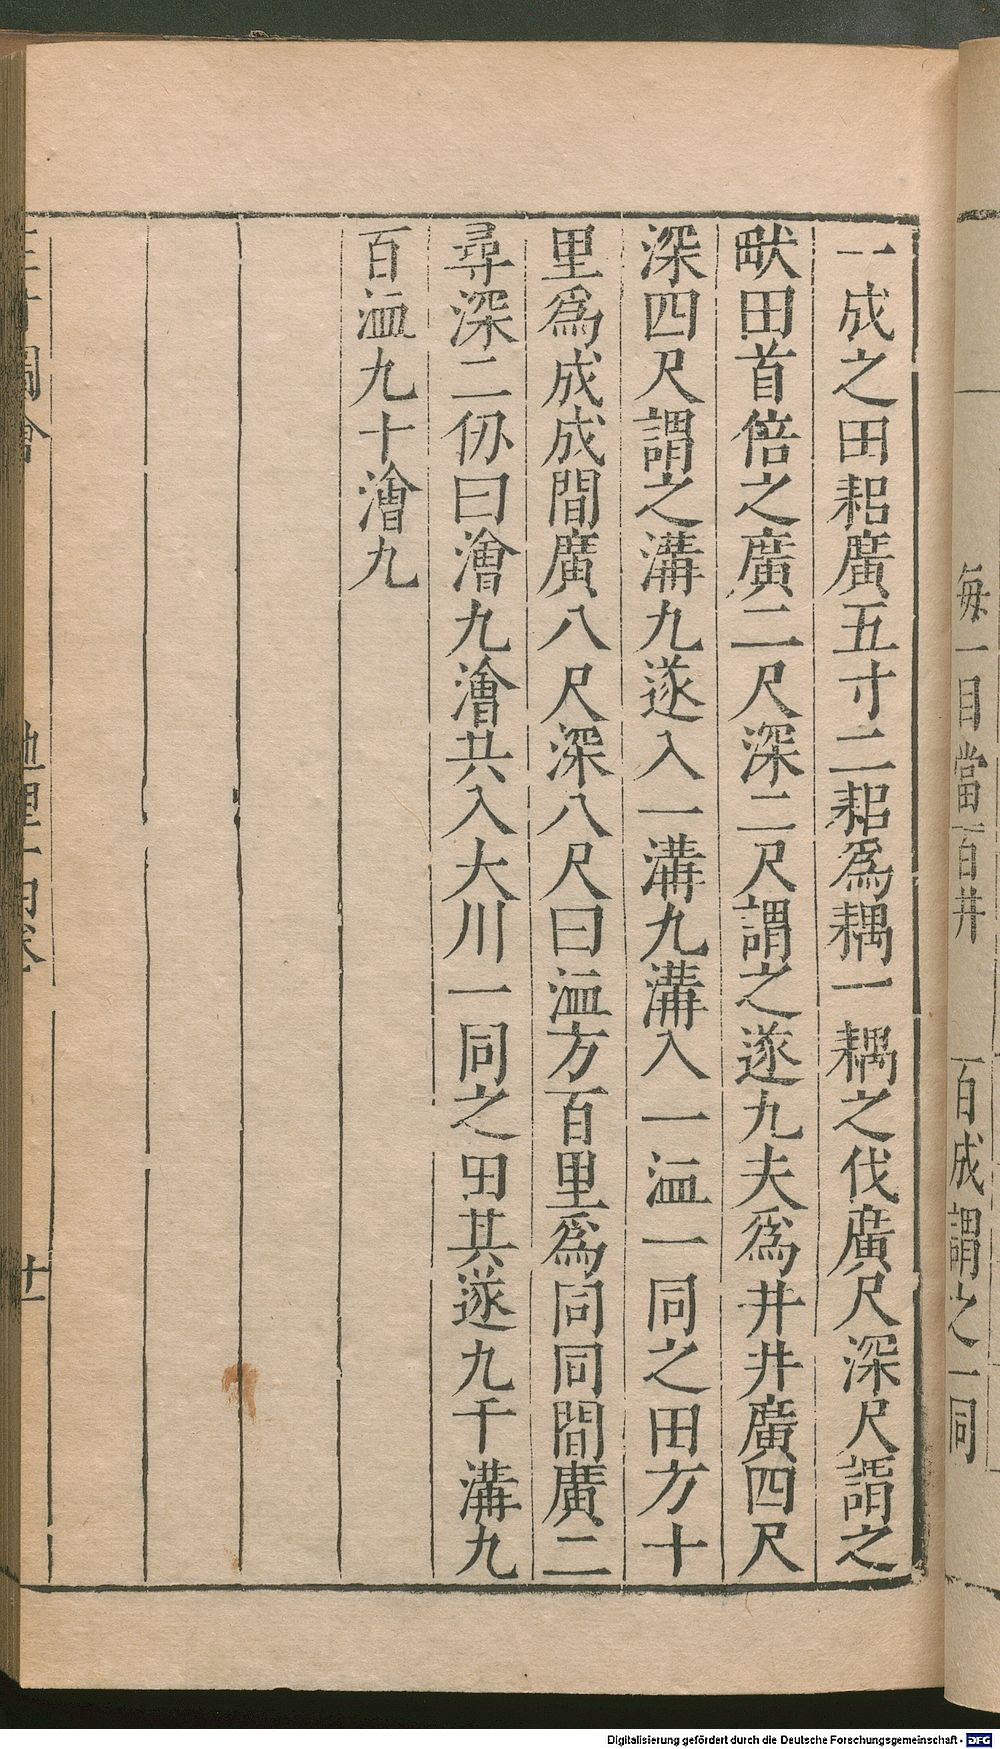 每一目當百井　百成謂之一同
一成之田耜廣五寸二耜爲耦一耦之伐廣尺深尺謂之
畎田首倍之廣二尺深二尺謂之遂九夫爲井井廣四尺
深四尺謂之溝九遂入一溝九溝入一洫一同之田方十
里爲成成間廣八尺深八尺曰洫方百里爲同同間廣二
尋深二仞曰澮九澮共入大川一同之田其遂九千溝九
百洫九十澮九
Digitalisierung gefördert durch die Deutsche Forschungsgemeinschaft - DFG